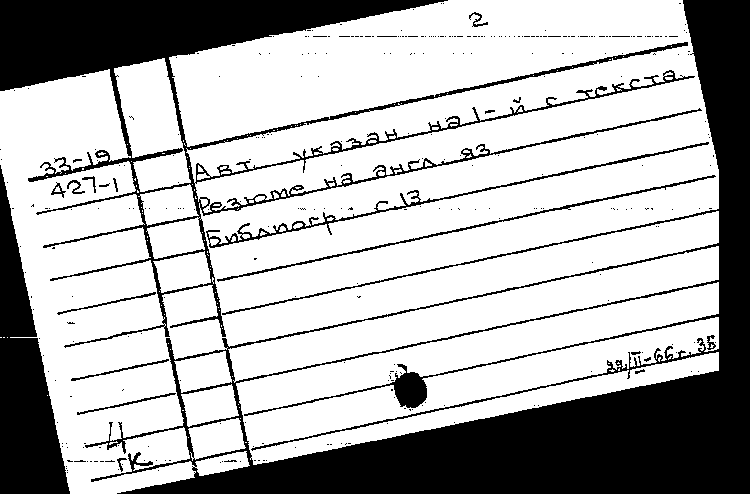 2
33-19
427-1
Авт. указан на 1-й с текста.
Резюме на англ. яз
Библиогр.: с.13.
22/II-66г. ЗБ
4
гк